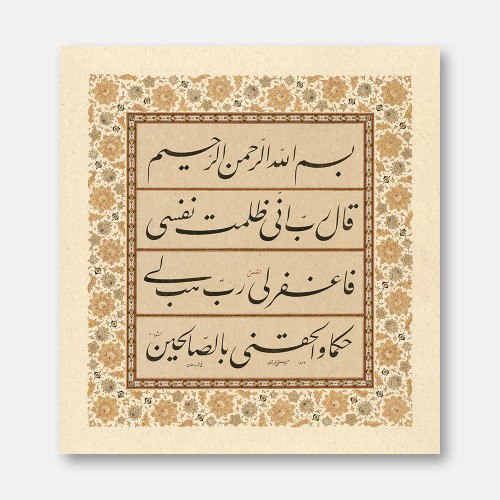 بسم الله الرحمن الرحيم
قال ربّ انّي ظلمت نفسي
فاغفر لي ربّ هب لي
حكما و الحقني بالصّالحين